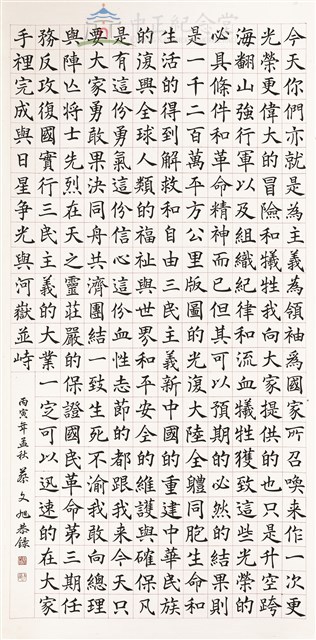 中正紀念堂
今天你們亦就是為主義為領袖為國家所召喚來作一次更
光榮更偉大的冒險和犧牲我向大家提供的也只是升空跨
海翻山強行軍以及組織紀律和流血犧牲獲致這些光榮的
必具條件和革命精神而已但其可以預期的必然的結果則
是一千二百萬平方公里版圖的光復大陸全體同胞生命和
生活的得到解救和自由三民主義新中國的重建中華民族
的復興全球人類的福祉與世界和平安全的維護與確保凡
是有這份勇氣這份信心這份血性志節的都跟我來今天只
要大家勇敢果決同舟共濟團結一致生死不渝我敢向總理
與陣亡將士先烈在天之靈莊嚴的保證國民革命第三期任
務反攻復國實行三民主義的大業一定可以迅速的在大家
手裡完成與日星爭光與河嶽並峙
丙寅年孟秋 蔡文旭恭錄